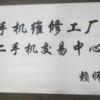 手机维修工厂
二手机交易中心
赖师